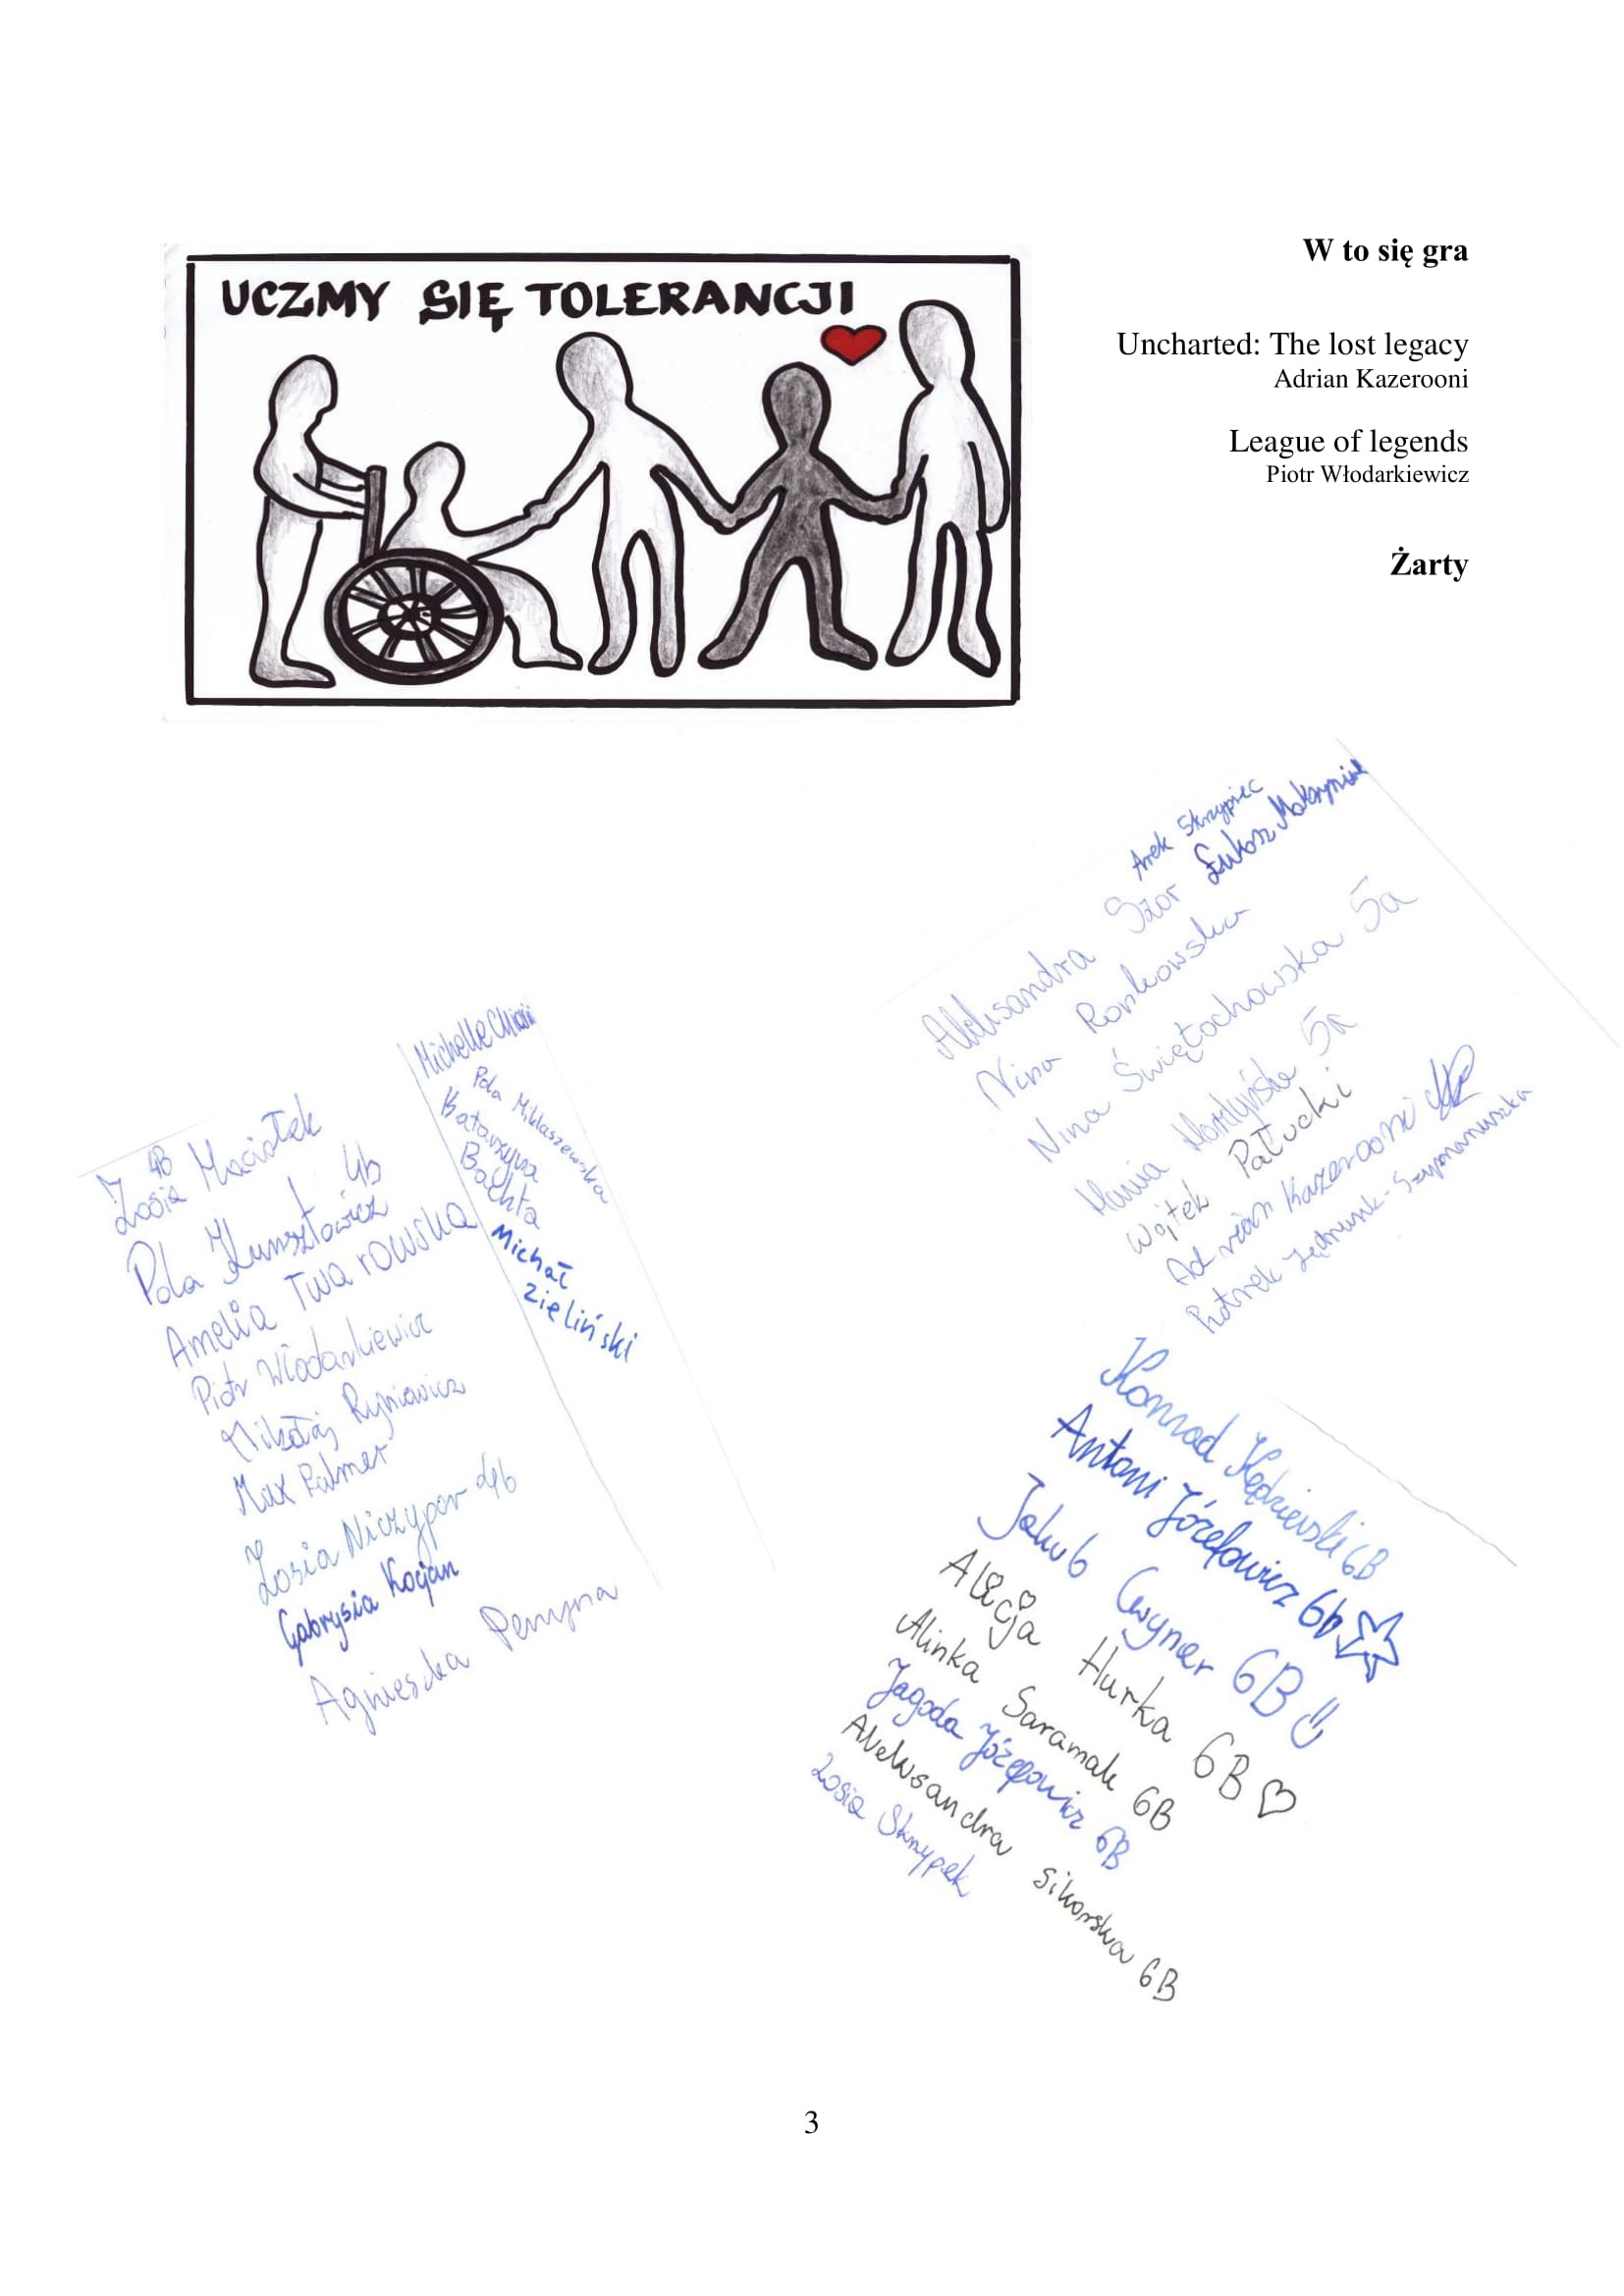 UCZMY SIĘ TOLERANCJI
W to się gra
Uncharted: The lost legacy
Adrian Kazerooni
League of legends
Piotr Włodarkiewicz
Żarty
Arek Skrzypiec
Łukasz
Aleksandra Szor
Nina
Nina Świętochowska 5a
Hania 5a
Wojtek Pałucki
Adrian Kazerooni
Michelle
Pola Miklaszewska
Katarzyna
Bachta
Michał
Zieliński
4B
Zosia Maciołek
4b
Pola Kunsztowicz
Amelia Twarowska
Piotr Włodarkiewicz
Mikołaj Ryniewicz
Max Palmer
Zosia Niczypor 4b
Gabrysia Kocjan
Agnieszka
Konrad Kędzierski 6B
Antoni Józefowicz 6b
Jakub Cwyner 6B
Alicja Hurka 6B
Alinka Saramak 6B
Jagoda Józefowicz 6B
Aleksandra Sikorska 6B
Zosia Skrzypek
3